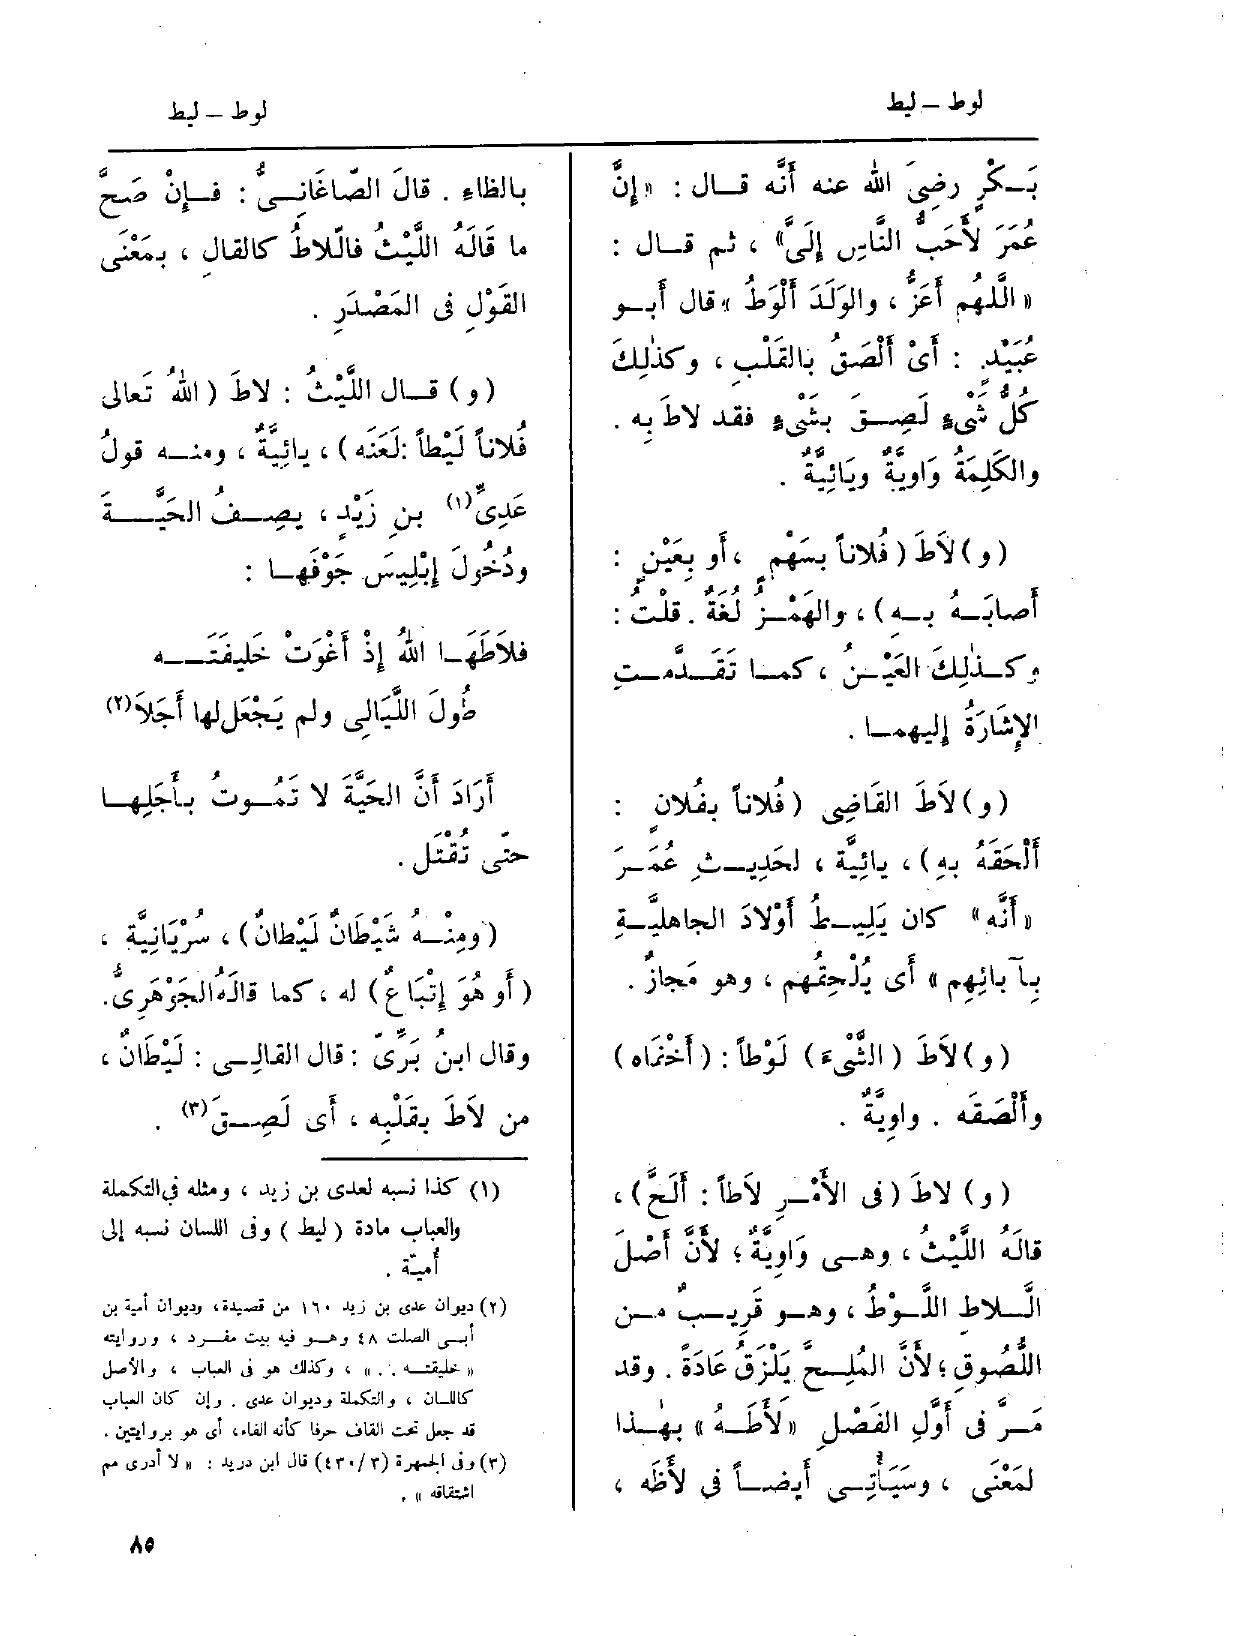 لوط – ليط
لوط – ليط
بَـكْرٍ رضِىَ الله عنه أَنَّه قـال : «إِنَّ
عُمَرَ لأَحَبُّ النَّاسِ إِلَىَّ» ، ثم قـال :
«اللَّهُم أَعَزُّ ، والوَلَدَ أَلْوَطُ» قال أَبـو
عُبَيْد : أَىْ أَلْصَقُ بالقَلْبِ ، وكذٰلِكَ
كُلُّ شَىْءٍ لَصِـقَ بشَىْءٍ فقد لاطَ بِه .
والكَلِمَةُ وَاوِيَّةٌ ويَائِيَّةٌ .
(و) لاَطَ (فُلاناً بسَهْمٍ ، أَو بِعَيْنٍ :
أَصابَـهُ بـه) ، والهَمْـزُ لُغَةٌ . قلْتُ :
وكـذٰلِكَ العَيْـنُ ، كمـا تَقَـدَّمـت
الإِشَارَةُ إِليهمـا .
(و) لاَطَ القَاضِى (فُلاناً بفُلانٍ :
أَلْحَقَهُ بهِ) ، يائِيَّة ، لحَدِيـثِ عُمَـرَ
«أَنَّه» كان يَلِيـطُ أَوْلادَ الجاهليَّـةِ
بِآبائِهِم » أَى يُلْحِقُهم ، وهو مَجازٌ .
(و) لاَطَ (الشَّىْءَ) لَوْطاً : (أَخْفاه)
وأَلْصَقَه . واوِيَّةٌ .
(و) لاطَ (فى الأَمْـرِ لاَطاً : أَلَحَّ) ،
قالَهُ اللَّيْثُ ، وهـى وَاوِيَّةٌ ؛ لأَنَّ أَصْلَ
الَّـلاطِ اللَّـوْطُ ، وهـو قَرِيـبٌ مـن
اللُّصُوقِ ؛ لأَنَّ المُلِـحَّ يَلْزَقُ عَادَةً . وقد
مَـرَّ فى أَوَّلِ الفَصْلِ «لَأَطَـهُ» بهٰـذا
المَعْنَى ، وسَيَأْتِـى أَيضـاً فى لأَظَه ،
بالظاءِ . قالَ الصّاغَانِـىُّ : فـإِنْ صَحَّ
ما قَالَهُ اللَّيْثُ فالَّلاطُ كالقالِ ، بمَعْنَى
القَوْلِ فى المَصْدَرِ .
(و) قـال اللَّيْثُ : لاطَ (اللهُ تَعالى
فُلاناً لَيْطاً : لَعَنَه) ، يائِيَّةٌ ، ومنـه قولُ
عَدِىِّ(١) بنِ زَيْدٍ ، يصِـفُ الحَيَّـةَ
ودُخُولَ إِبْلِيسَ جَوْفَهـا :
فلاَطَهَـا اللهُ إِذْ أَغْوَتْ خَليفَتَـه
طُولَ اللَّيَالِى ولم يَجْعَلْ لها أَجَلاَ(٢)
أَرَادَ أَنَّ الحَيَّةَ لا تَمُـوتُ بـأَجَلِهـا
حتّى تُقْتَل .
(ومِنْـهُ شَيْطَانٌ لَيْطانٌ) ، سُرْيَانِيَّة ،
(أَو هُوَ إِتْبَاعٌ) له ، كما قالَهُ الجَوْهَرِىُّ.
وقال ابنُ بَرِّىّ : قال القالِـى : لَيْطَانٌ ،
من لاَطَ بقَلْبِه ، أَى لَصِـقَ(٣) .
(١) كذا نسبه لعدى بن زيد ، ومثله فى التكملة
والعباب مادة ( ليط ) وفى اللسان نسبه إلى
أُميّة .
(٢) ديوان عدى بن زيد ١٦٠ من قصيدة، وديوان أمية بن
أبـى الصلت ٤٨ وهـو فيه بيت مفـرد ، وروايته
«خليقتـه . . » ، وكذلك هو فى العباب ، والأصل
كاللسان ، والتكملة وديوان عدى . وإن كان العباب
قد جعل تحت القاف حرفا كأنه الفاء، أى هو بروايتين .
(٣) وفى الجمهرة (٣/٤٣٠) قال ابن دريد : « لا أدرى مم
اشتقاقه » .
٨٥